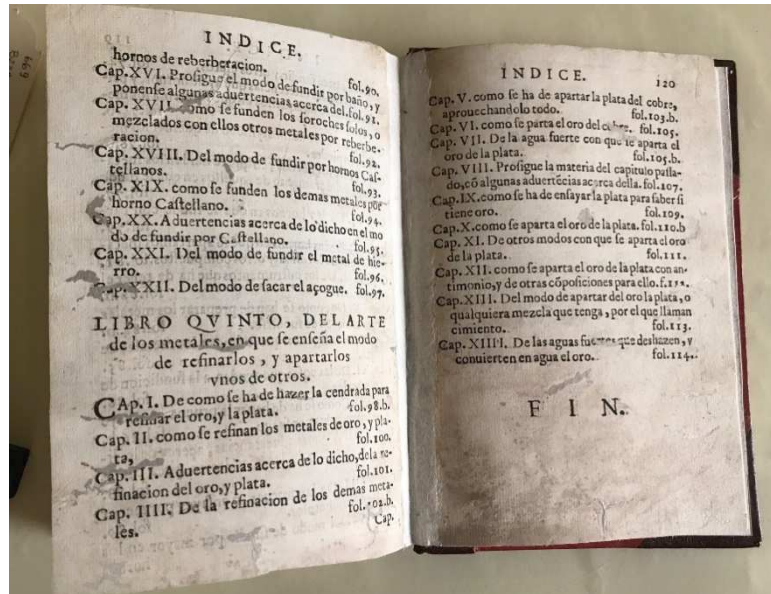 INDICE.
hornos de reberberacion. fol.90.
Cap.XVI. Prosigue el modo de fundir por baño, y
ponense algunas aduertencias acerca del. fol.91.
Cap. XVII. como se funden los soroches solos, o
mezclados con ellos otros metales por reberbe-
racion. fol.92.
Cap. XVIII. Del modo de fundir por hornos Cas-
tellanos. fol.93.
Cap. XIX. como se funden los demas metales por
horno Castellano. fol.94.
Cap.XX. Aduertencias acerca de lo dicho en el mo
do de fundir por Castellano. fol.95.
Cap. XXI. Del modo de fundir el metal de hie-
rro. fol.96.
Cap.XXII. Del modo de sacar el açogue. fol.97.
LIBRO QVINTO, DEL ARTE
de los metales, en que se enseña el modo
de refinarlos, y apartarlos
vnos de otros.
CAp. I. De como se ha de hazer la cendrada para
refinar el oro, y la plata. fol.98.b.
Cap. II. como se refinan los metales de oro, y pla-
ta, fol.100.
Cap. III. Aduertencias acerca de lo dicho, dela re-
finacion del oro, y plata. fol.101.
Cap. IIII. De la refinacion de los demas meta-
les. fol.102.b.
Cap.
INDICE. 120
Cap. V. como se ha de apartar la plata del cobre,
aprouechandolo todo. fol.103.b.
Cap. VI. como se parta el oro del cobre. fol.105.
Cap. VII. De la agua fuerte con que se aparta el
oro de la plata. fol.105.b.
Cap. VIII. Prosigue la materia del capitulo passa-
do, cõ algunas aduertẽcias acerca della. fol.107.
Cap.IX.como se ha de ensayar la plata para saber si
tiene oro. fol.109.
Cap.X.como se aparta el oro de la plata. fol.110.b
Cap. XI. De otros modos con que se aparta el oro
de la plata. fol.111.
Cap. XII. como se aparta el oro de la plata con an-
timonio, y de otras cõposiciones para ello. f.112.
Cap.XIII. Del modo de apartar del oro la plata, o
qualquiera mezcla que tenga, por el que llaman
cimiento. fol.113.
Cap. XIIII. De las aguas fuertes que deshazen, y
conuierten en agua el oro. fol.114.
FIN.